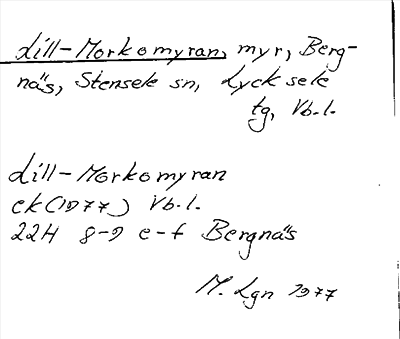 Lill-Morkomyran, myr, Berg-
näs, Stensele sn, Lycksele
tg, Vb.l.
Lill-Morkomyran
ek (1977) Vb.l.
22H 8-9 e-f Bergnäs
M. Lgn 1977